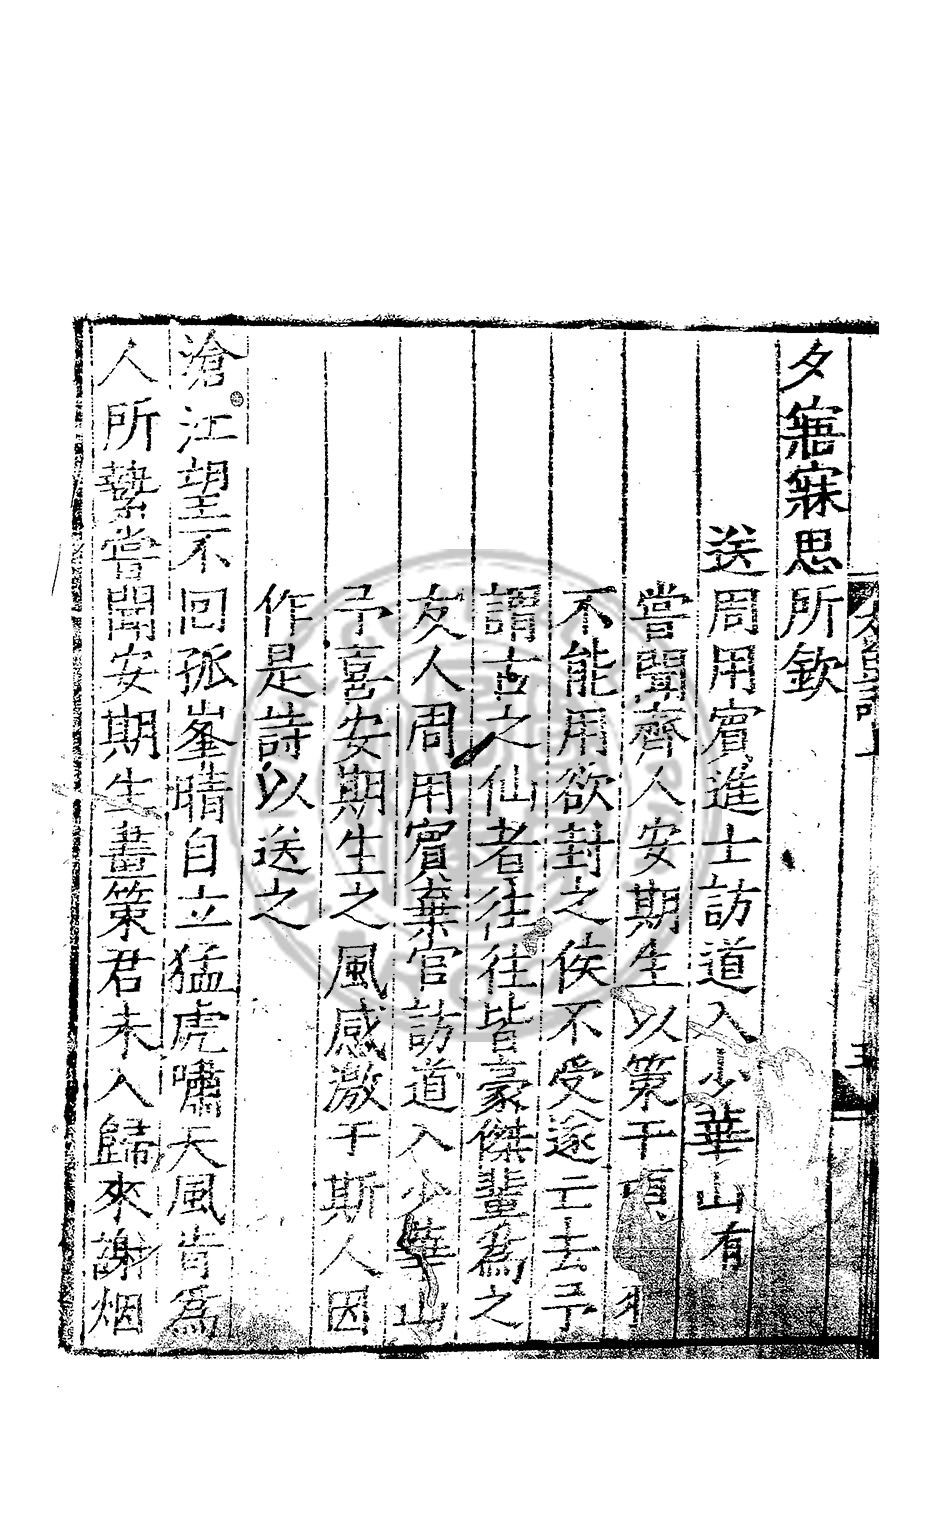 夕寤寐思所欽
送周用賓進士訪道入少華山有
嘗聞齊人安期生以策干項羽
不能用欲封之侯不受遂亡去予
謂古之仙者往往皆豪傑輩爲之
友人周用賓棄官訪道入少華山
予喜安期生之風感激于斯人因
作是詩以送之
滄江望不回孤峯晴自立猛虎嘯天風肯爲
人所縶嘗聞安期生畫策君未入歸來謝烟